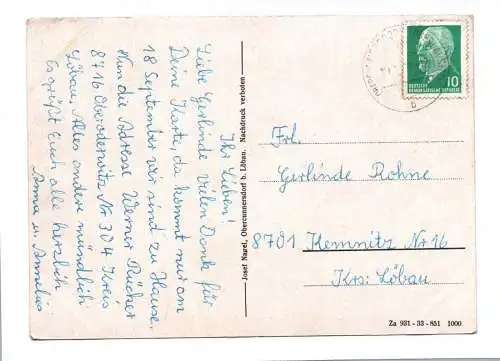 Ihr Lieben!
Liebe Gerlinde vielen Dank für
Deine Karte, da kommt nur am
18 September wir sind zu Hause.
Nun die Adresse Werner Rücker
8716 Oberoderwitz Nr 304 Kreis
Löbau. Alles andere mündlich
Es grüßt Euch alle herzlich
Anna u.
Josef Nagel, Obercunnersdorf b. Löbau. Nachdruck verboten
10
DEUTSCHE
DEMOKRATISCHE REPUBLIK
b
Frl.
Gerlinde Rohne
8701 Kemnitz Nr 16
Krs: Löbau
Za 931 - 33 - 851 1000